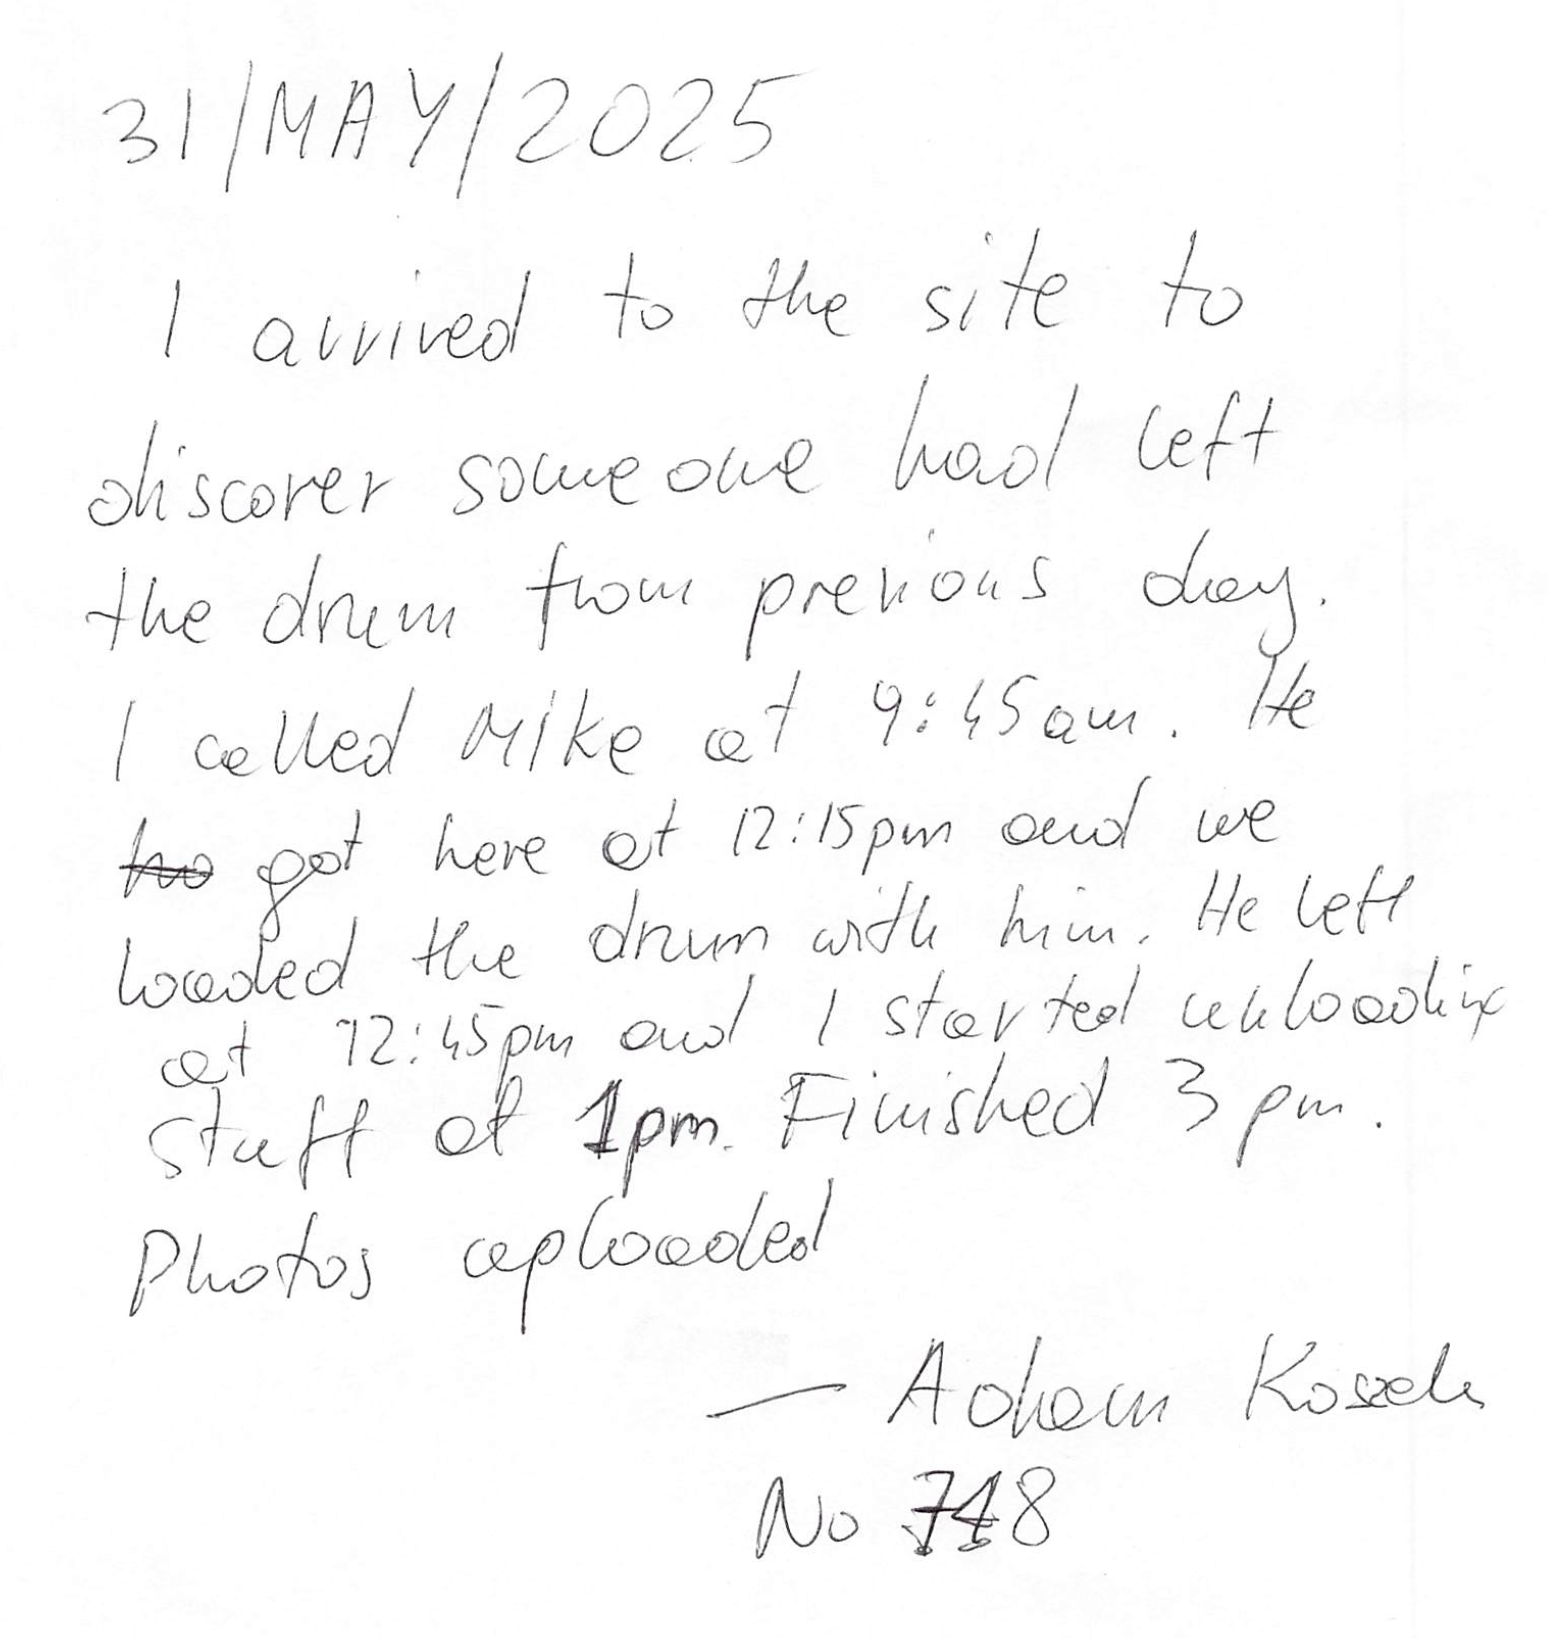 31/MAY/2025
I arrived to the site to
discover someone had left
the drum from previous day.
I called Mike at 9:45am. He
got here at 12:15pm and we
loaded the drum with him. He left
at 12:45pm and I started unloading
stuff at 1pm. Finished 3pm.
Photos uploaded
— Adam
No 8